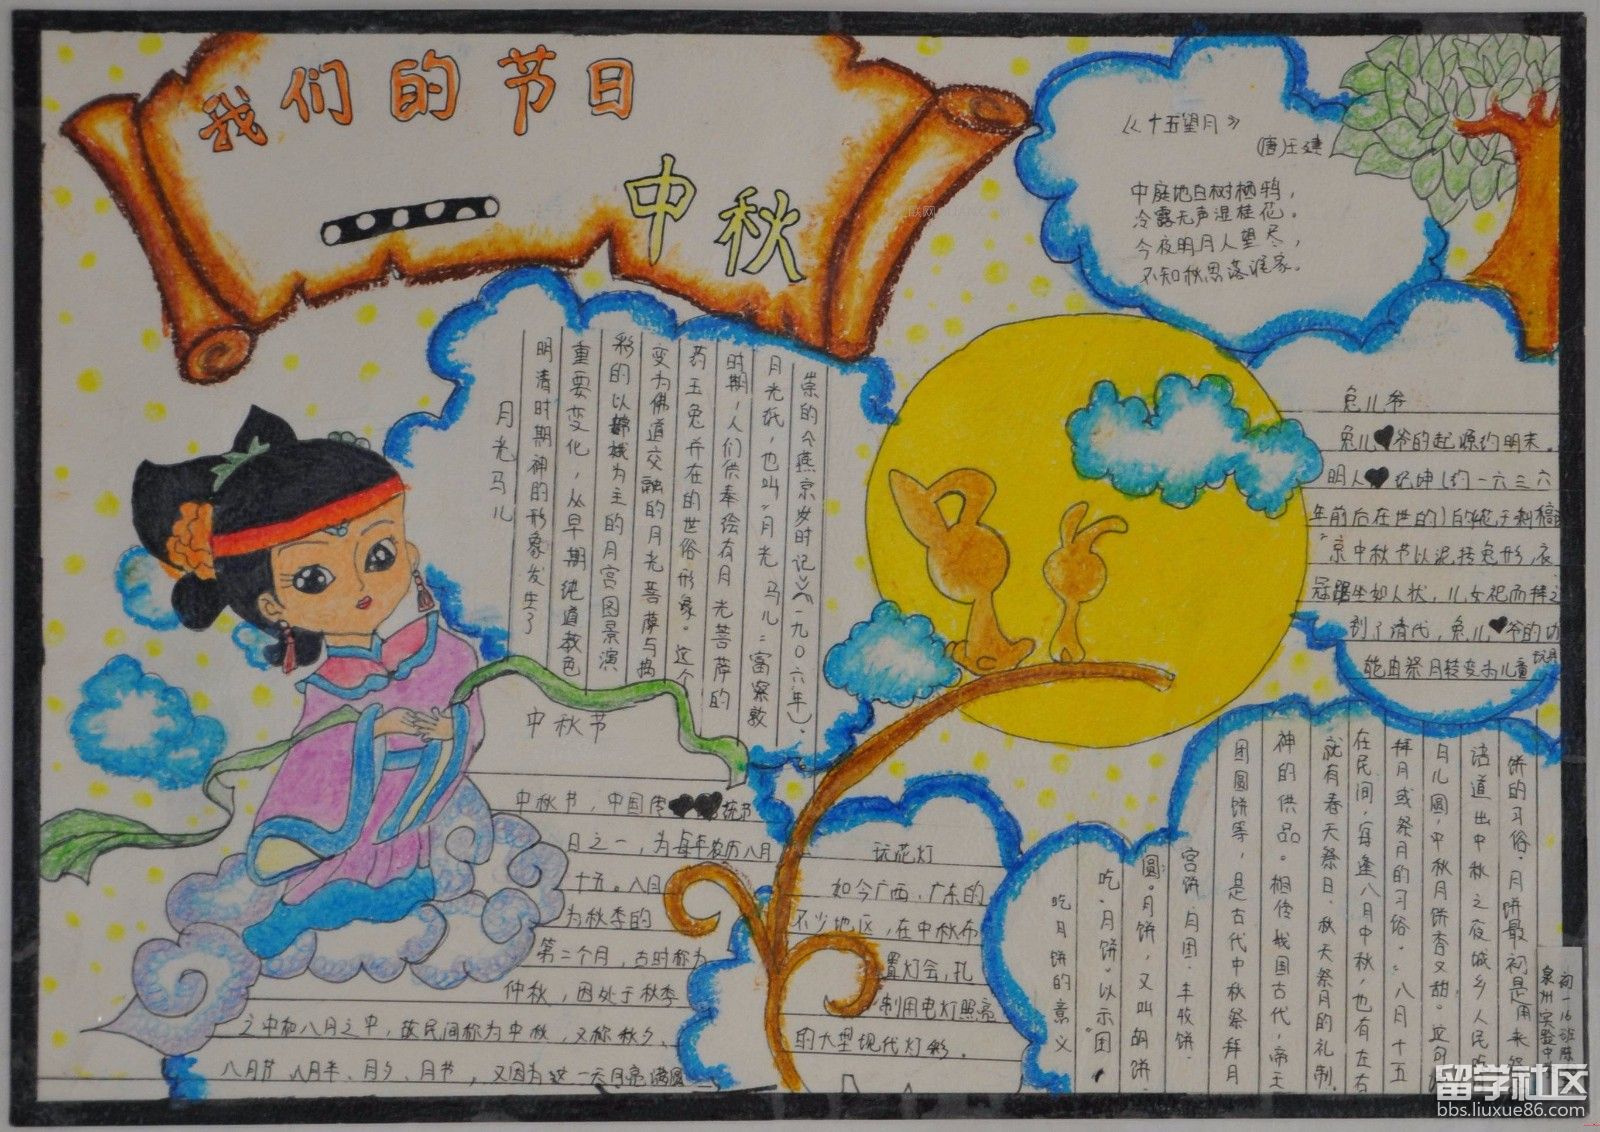 我们的节日
中秋
《十五望月》
(唐)王建
中庭地白树栖鸦，
冷露无声湿桂花。
今夜明月人望尽，
不知秋思落谁家。
月光马儿
明清时期神的形象发生了
重要变化，从早期纯道教色
彩的以嫦娥为主的月宫图景演
变为佛道交融的月光菩萨与捣
药玉兔并在的世俗形象。这个
时期，人们供奉绘有月光菩萨的
月光纸，也叫"月光马儿"富察敦
崇的《燕京岁时记》(一九〇六年)、
兔儿爷
兔儿爷的起源约明末。
明人纪坤(约一六三六
年前后在世的)的
"京中秋节以泥抟兔形，衣
冠踞坐如人状，儿女祀而拜之
到了清代，兔儿爷的功
能由祭月转变为儿童
玩具
中秋节
中秋节，中国传统节
日之一，为每年农历八月
十五。八月
为秋季的
第二个月，古时称为
仲秋，因处于秋季
之中和八月之中，故民间称为中秋，又称秋夕、
八月节、八月半、月夕、月节，又因为这一天月亮满圆
玩花灯
如今广西、广东的
不少地区，在中秋布
置灯会，扎
制用电灯照亮
的大型现代灯彩。
吃月饼的意义
吃"月饼"以示"团
圆"。月饼，又叫胡饼、
宫饼、月团、丰收饼、
团圆饼等，是古代中秋祭拜月
神的供品。相传我国古代，帝王
就有春天祭日、秋天祭月的礼制。
在民间，每逢八月中秋，也有左右
拜月或祭月的习俗。"八月十五
月儿圆，中秋月饼香又甜"。这句
话道出中秋之夜城乡人民吃
饼的习俗。月饼最初是用来祭
初一16班陈
泉州实验中
留学社区
bbs.liuxue86.com